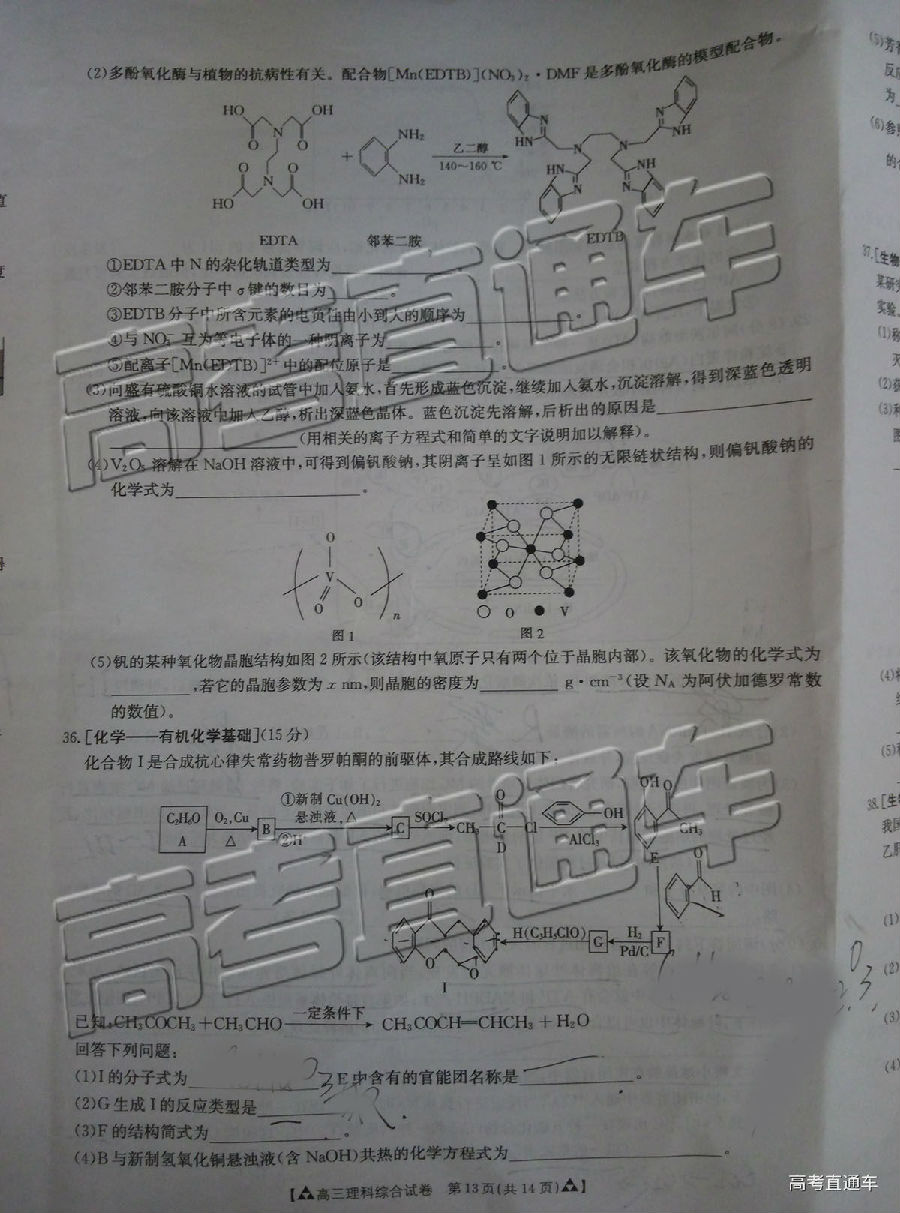 (2)多酚氧化酶与植物的抗病性有关。配合物[Mn(EDTB)](NO₃)₂·DMF是多酚氧化酶的模型配合物。
HO OH O O N
O O N HO OH
+
NH₂
NH₂
乙二醇
140～160 ℃
N HN N NH N N HN N NH N
EDTA 邻苯二胺 EDTB
①EDTA中N的杂化轨道类型为
②邻苯二胺分子中σ键的数目为 。
③EDTB分子中所含元素的电负性由小到大的顺序为 。
④与NO₃⁻互为等电子体的一种阴离子为 。
⑤配离子[Mn(EDTB)]²⁺中的配位原子是 。
(3)向盛有硫酸铜水溶液的试管中加入氨水,首先形成蓝色沉淀,继续加入氨水,沉淀溶解,得到深蓝色透明
溶液,向该溶液中加入乙醇,析出深蓝色晶体。蓝色沉淀先溶解,后析出的原因是
(用相关的离子方程式和简单的文字说明加以解释)。
(4)V₂O₅溶解在NaOH溶液中,可得到偏钒酸钠,其阴离子呈如图1所示的无限链状结构,则偏钒酸钠的
化学式为 。
O
V
O O n
O V
图1 图2
(5)钒的某种氧化物晶胞结构如图2所示(该结构中氧原子只有两个位于晶胞内部)。该氧化物的化学式为
,若它的晶胞参数为x nm,则晶胞的密度为 g·cm⁻³(设Nᴀ为阿伏加德罗常数
的数值)。
36.[化学——有机化学基础](15分)
化合物I是合成抗心律失常药物普罗帕酮的前驱体,其合成路线如下:
C₂H₆O
A
O₂,Cu
△
B
①新制Cu(OH)₂
悬浊液,△
②H⁺
C
SOCl₂
CH₃ C Cl
O
D
OH
AlCl₃
OH O
CH₃
E
O
H
F
H₂
Pd/C
G
H(C₃H₅ClO)
O
O
O
I
已知:CH₃COCH₃+CH₃CHO 一定条件下 CH₃COCH=CHCH₃+H₂O
回答下列问题:
(1)I的分子式为 ,E中含有的官能团名称是 。
(2)G生成I的反应类型是
(3)F的结构简式为 。
(4)B与新制氢氧化铜悬浊液(含NaOH)共热的化学方程式为 。
高三理科综合试卷 第13页(共14页)
高考直通车
高考直通车
高考直通车
(5)芳
反应
为
(6)参照
的
37.[生物
某研
实验
(1)称
灭
(2)获
(3)
(4)
(5)
38.[生
我国
乙
(1)
(2)
(3)
(4)